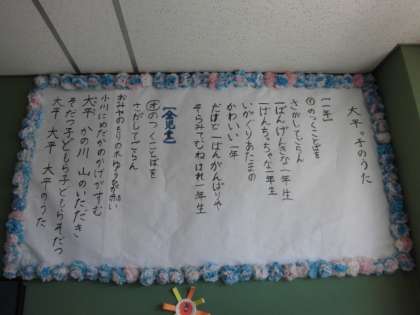 大平っ子のうた
【一年】
Ⓘのつくことばを
さがしてごらん
一ばんげんきな一年生
一ばんちっちゃな一年生
いがぐりあたまの
かわいい一年
だけど一ばんがんばりや
そらみてむねはれ一年生
【全児童】
のつくことばを
さがしてごらん
小川にめだかのかげがすーむ
大平 かの川 山のいただき
そだつ子ども子どもらそだつ
大平 大平 大平のうた